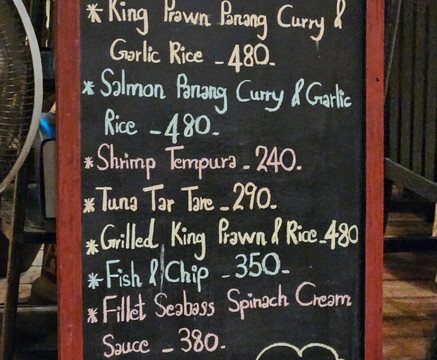 * King Prawn Panang Curry &
Garlic Rice - 480.
* Salmon Panang Curry & Garlic
Rice - 480.
* Shrimp Tempura - 240.
* Tuna Tar Tare - 290.
* Grilled King Prawn & Rice - 480
* Fish & Chip - 350 -
* Fillet Seabass Spinach Cream
Sauce - 380.